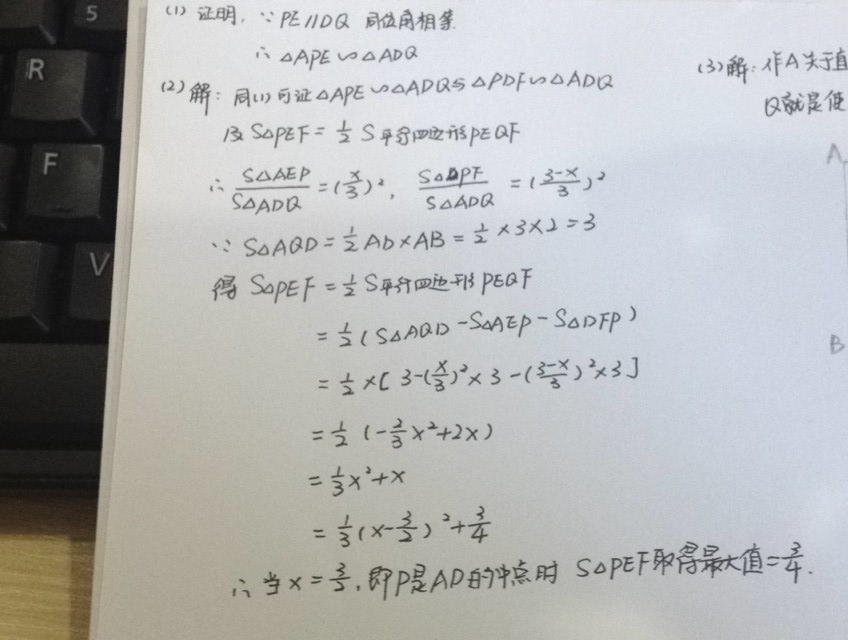 5
R
F
V
(1) 证明, ∵ PE//DQ 同位角相等
∴ △APE∽△ADQ
(2) 解: 同(1)可证△APE∽△ADQ与△PDF∽△ADQ
及 S△PEF = 1/2 S平行四边形PEQF
∴ S△AEP/S△ADQ = (x/3)², S△DPF/S△ADQ = (3-x/3)²
∵ S△AQD = 1/2 AD×AB = 1/2 ×3×2 = 3
得 S△PEF = 1/2 S平行四边形PEQF
= 1/2 (S△AQD - S△AEP - S△DFP)
= 1/2 ×[3-(x/3)²×3-(3-x/3)²×3]
= 1/2 (-2/3x²+2x)
= 1/3x²+x
= 1/3(x-3/2)²+3/4
∴ 当x=3/2, 即P是AD的中点时 S△PEF取得最大值=3/4.
(3)解: 作A关于直
Q就是使
A
B